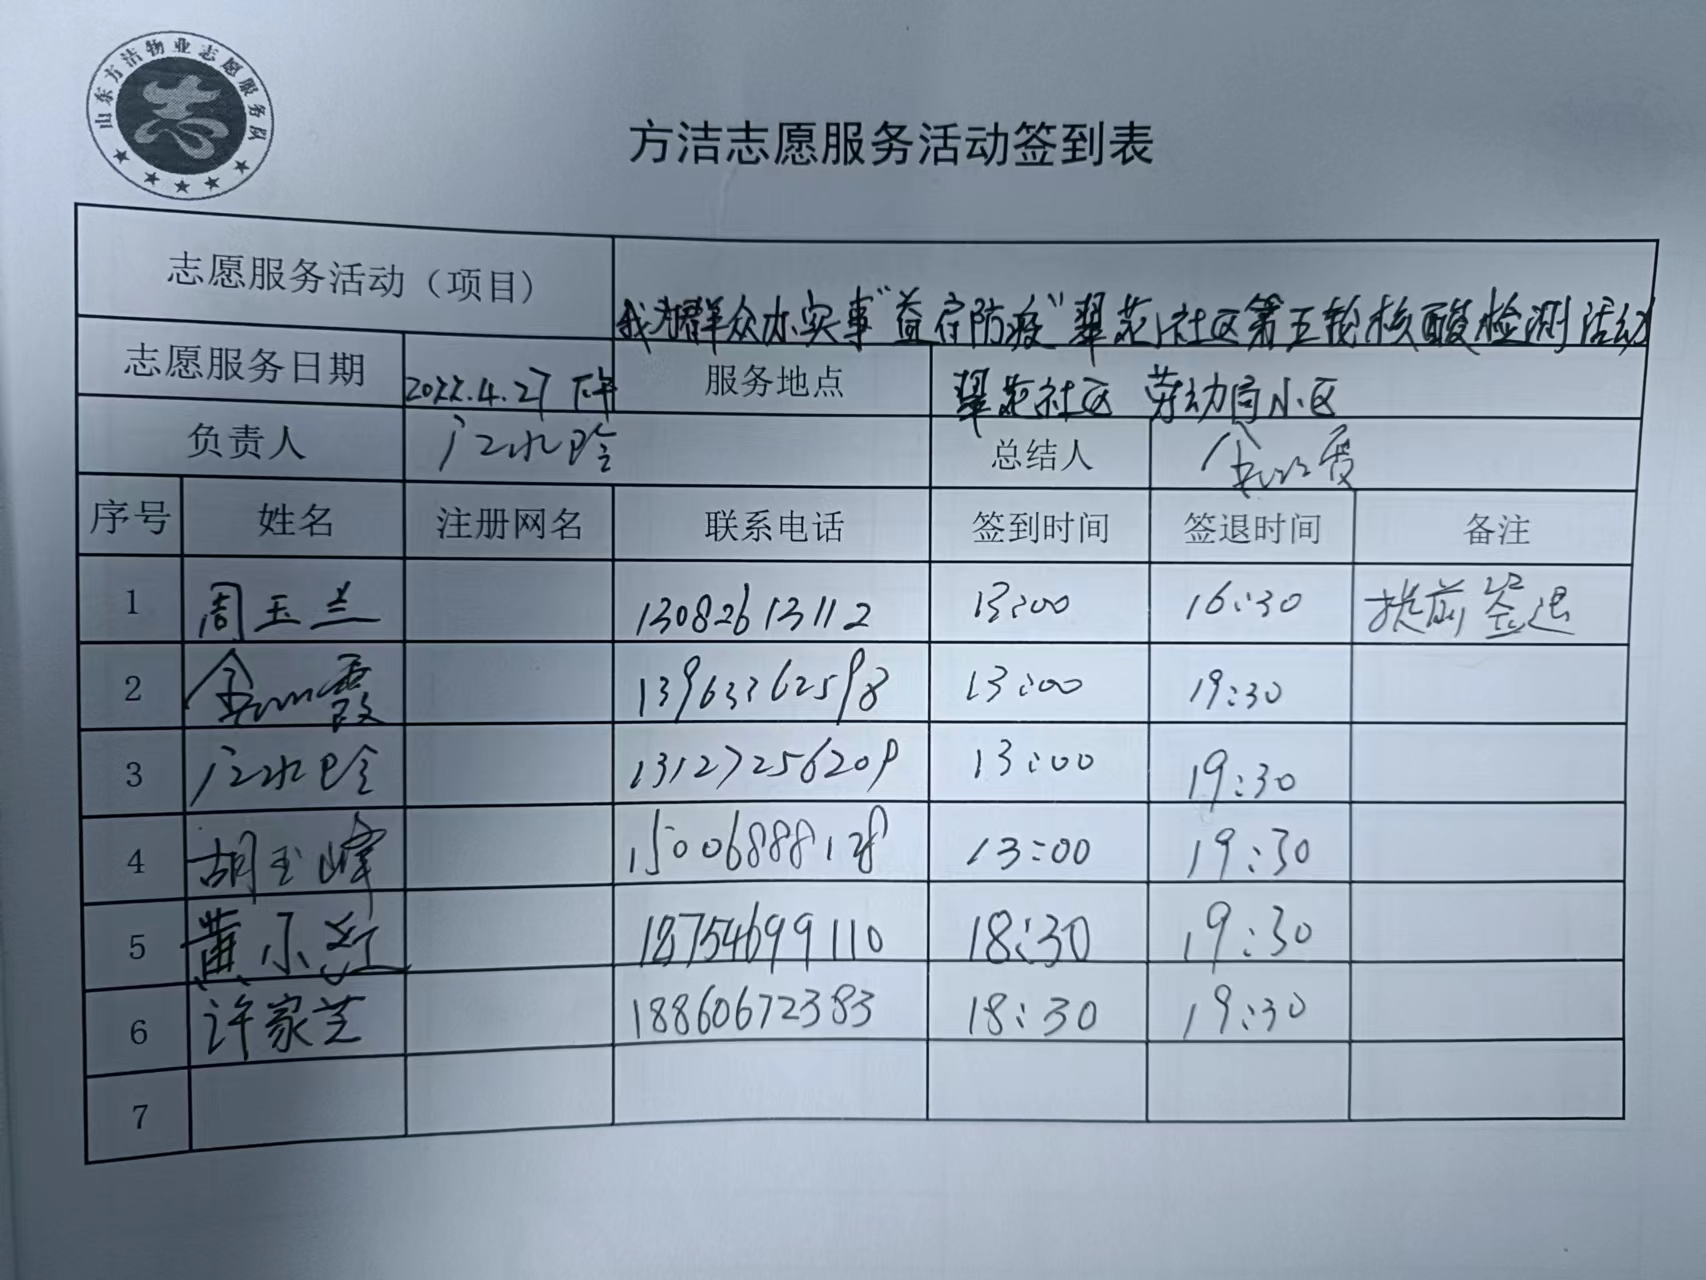 山东方洁物业志愿服务队
志
方洁志愿服务活动签到表
志愿服务活动（项目） 我为群众办实事"益宿防疫"翠苑社区第五轮核酸检测活动
志愿服务日期 2022.4.27 下午 服务地点 翠苑社区 劳动局小区
负责人 总结人
序号 姓名 注册网名 联系电话 签到时间 签退时间 备注
1 周玉兰 13082613112 13:00 16:30 提前签退
2 13963362598 13:00 19:30
3 13127256209 13:00 19:30
4 胡玉峰 15006888128 13:00 19:30
5 黄小红 18754699110 18:30 19:30
6 许家芝 18860672383 18:30 19:30
7